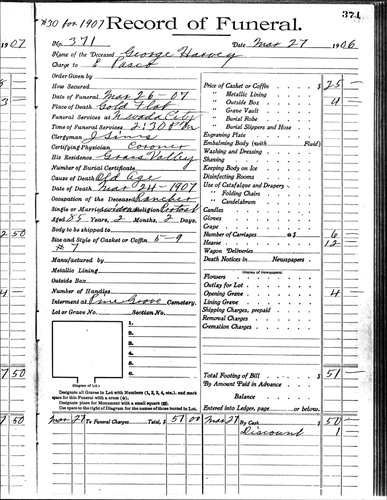 #30 for 1907 Record of Funeral. 371
1907 No. 371 Date Mar 27 1906
Name of the Deceased George Harvey
Charge to E Pasco
Order Given by
How Secured
Date of Funeral Mar 26-07
Place of Death Gold Flat
Funeral Services at Nevada City
Time of Funeral Services 2:30 P.M.
Clergyman J Sims
Certifying Physician Coroner
His Residence Grass Valley
Number of Burial Certificate
Cause of Death Old Age
Date of Death Mar 24-1907
Occupation of the Deceased Rancher
Single or Married widow Religion Protest
Aged 85 Years, 2 Months, 2 Days.
Body to be shipped to
Size and Style of Casket or Coffin 5-9
#7
Manufactured by
Metallic Lining
Outside Box
Number of Handles
Interment at Pine Grove Cemetery.
Lot or Grave No. Section No.
1.
2.
3.
4.
5.
6.
(Diagram of Lot.)
Designate all Graves in Lot with Numbers (1, 2, 3, 4, etc.), and mark
space for this Funeral with a cross (+).
Designate place for Monument with a small square (□).
Use space to the right of Diagram for the names of those buried in Lot.
Mar 27 To Funeral Charges Total, $ 51 00
Price of Casket or Coffin $ 25 -
" Metallic Lining
" Outside Box 4
" Grave Vault
" Burial Robe
" Burial Slippers and Hose
Engraving Plate
Embalming Body (with Fluid)
Washing and Dressing
Shaving
Keeping Body on Ice
Disinfecting Rooms
Use of Catafalque and Drapery
" Folding Chairs
" Candelabrum
Candles
Gloves
Crape
Number of Carriages @ $ 6
Hearse 12
Wagon Deliveries
Death Notices in Newspapers
(Names of Newspapers)
Flowers
Outlay for Lot
Opening Grave 4
Lining Grave
Shipping Charges, prepaid
Removal Charges
Cremation Charges
Total Footing of Bill $ 51 -
By Amount Paid in Advance
Balance
Entered into Ledger, page or below.
Mar 27 By Cash $ 50 -
Discount 1